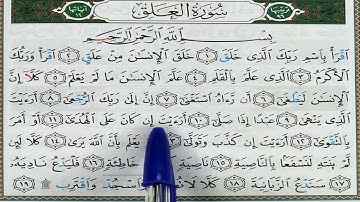 سُورَةُ الْعَلَقِ
بِسْمِ اللَّهِ الرَّحْمَٰنِ الرَّحِيمِ
اقْرَأْ بِاسْمِ رَبِّكَ الَّذِي خَلَقَ ١ خَلَقَ الْإِنسَانَ مِنْ عَلَقٍ ٢ اقْرَأْ وَرَبُّكَ
الْأَكْرَمُ ٣ الَّذِي عَلَّمَ بِالْقَلَمِ ٤ عَلَّمَ الْإِنسَانَ مَا لَمْ يَعْلَمْ ٥ كَلَّا إِنَّ
الْإِنسَانَ لَيَطْغَىٰ ٦ أَن رَّآهُ اسْتَغْنَىٰ ٧ إِنَّ إِلَىٰ رَبِّكَ الرُّجْعَىٰ ٨ أَرَأَيْتَ
الَّذِي يَنْهَىٰ ٩ عَبْدًا إِذَا صَلَّىٰ ١٠ أَرَأَيْتَ إِن كَانَ عَلَى الْهُدَىٰ ١١ أَوْ أَمَرَ
بِالتَّقْوَىٰ ١٢ أَرَأَيْتَ إِن كَذَّبَ وَتَوَلَّىٰ ١٣ أَلَمْ يَعْلَم بِأَنَّ اللَّهَ يَرَىٰ ١٤ كَلَّا لَئِن
لَّمْ يَنتَهِ لَنَسْفَعًا بِالنَّاصِيَةِ ١٥ نَاصِيَةٍ خَاطِئَةٍ ١٦ فَلْيَدْعُ نَادِيَهُ
١٧ سَنَدْعُ الزَّبَانِيَةَ ١٨ كَلَّا لَا وَاقْتَرِب ۩ ١٩